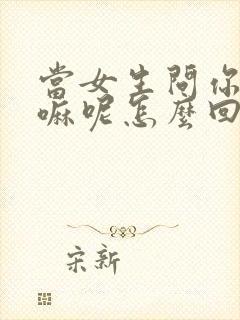 當女生問你
嘛呢怎麼回
宋新